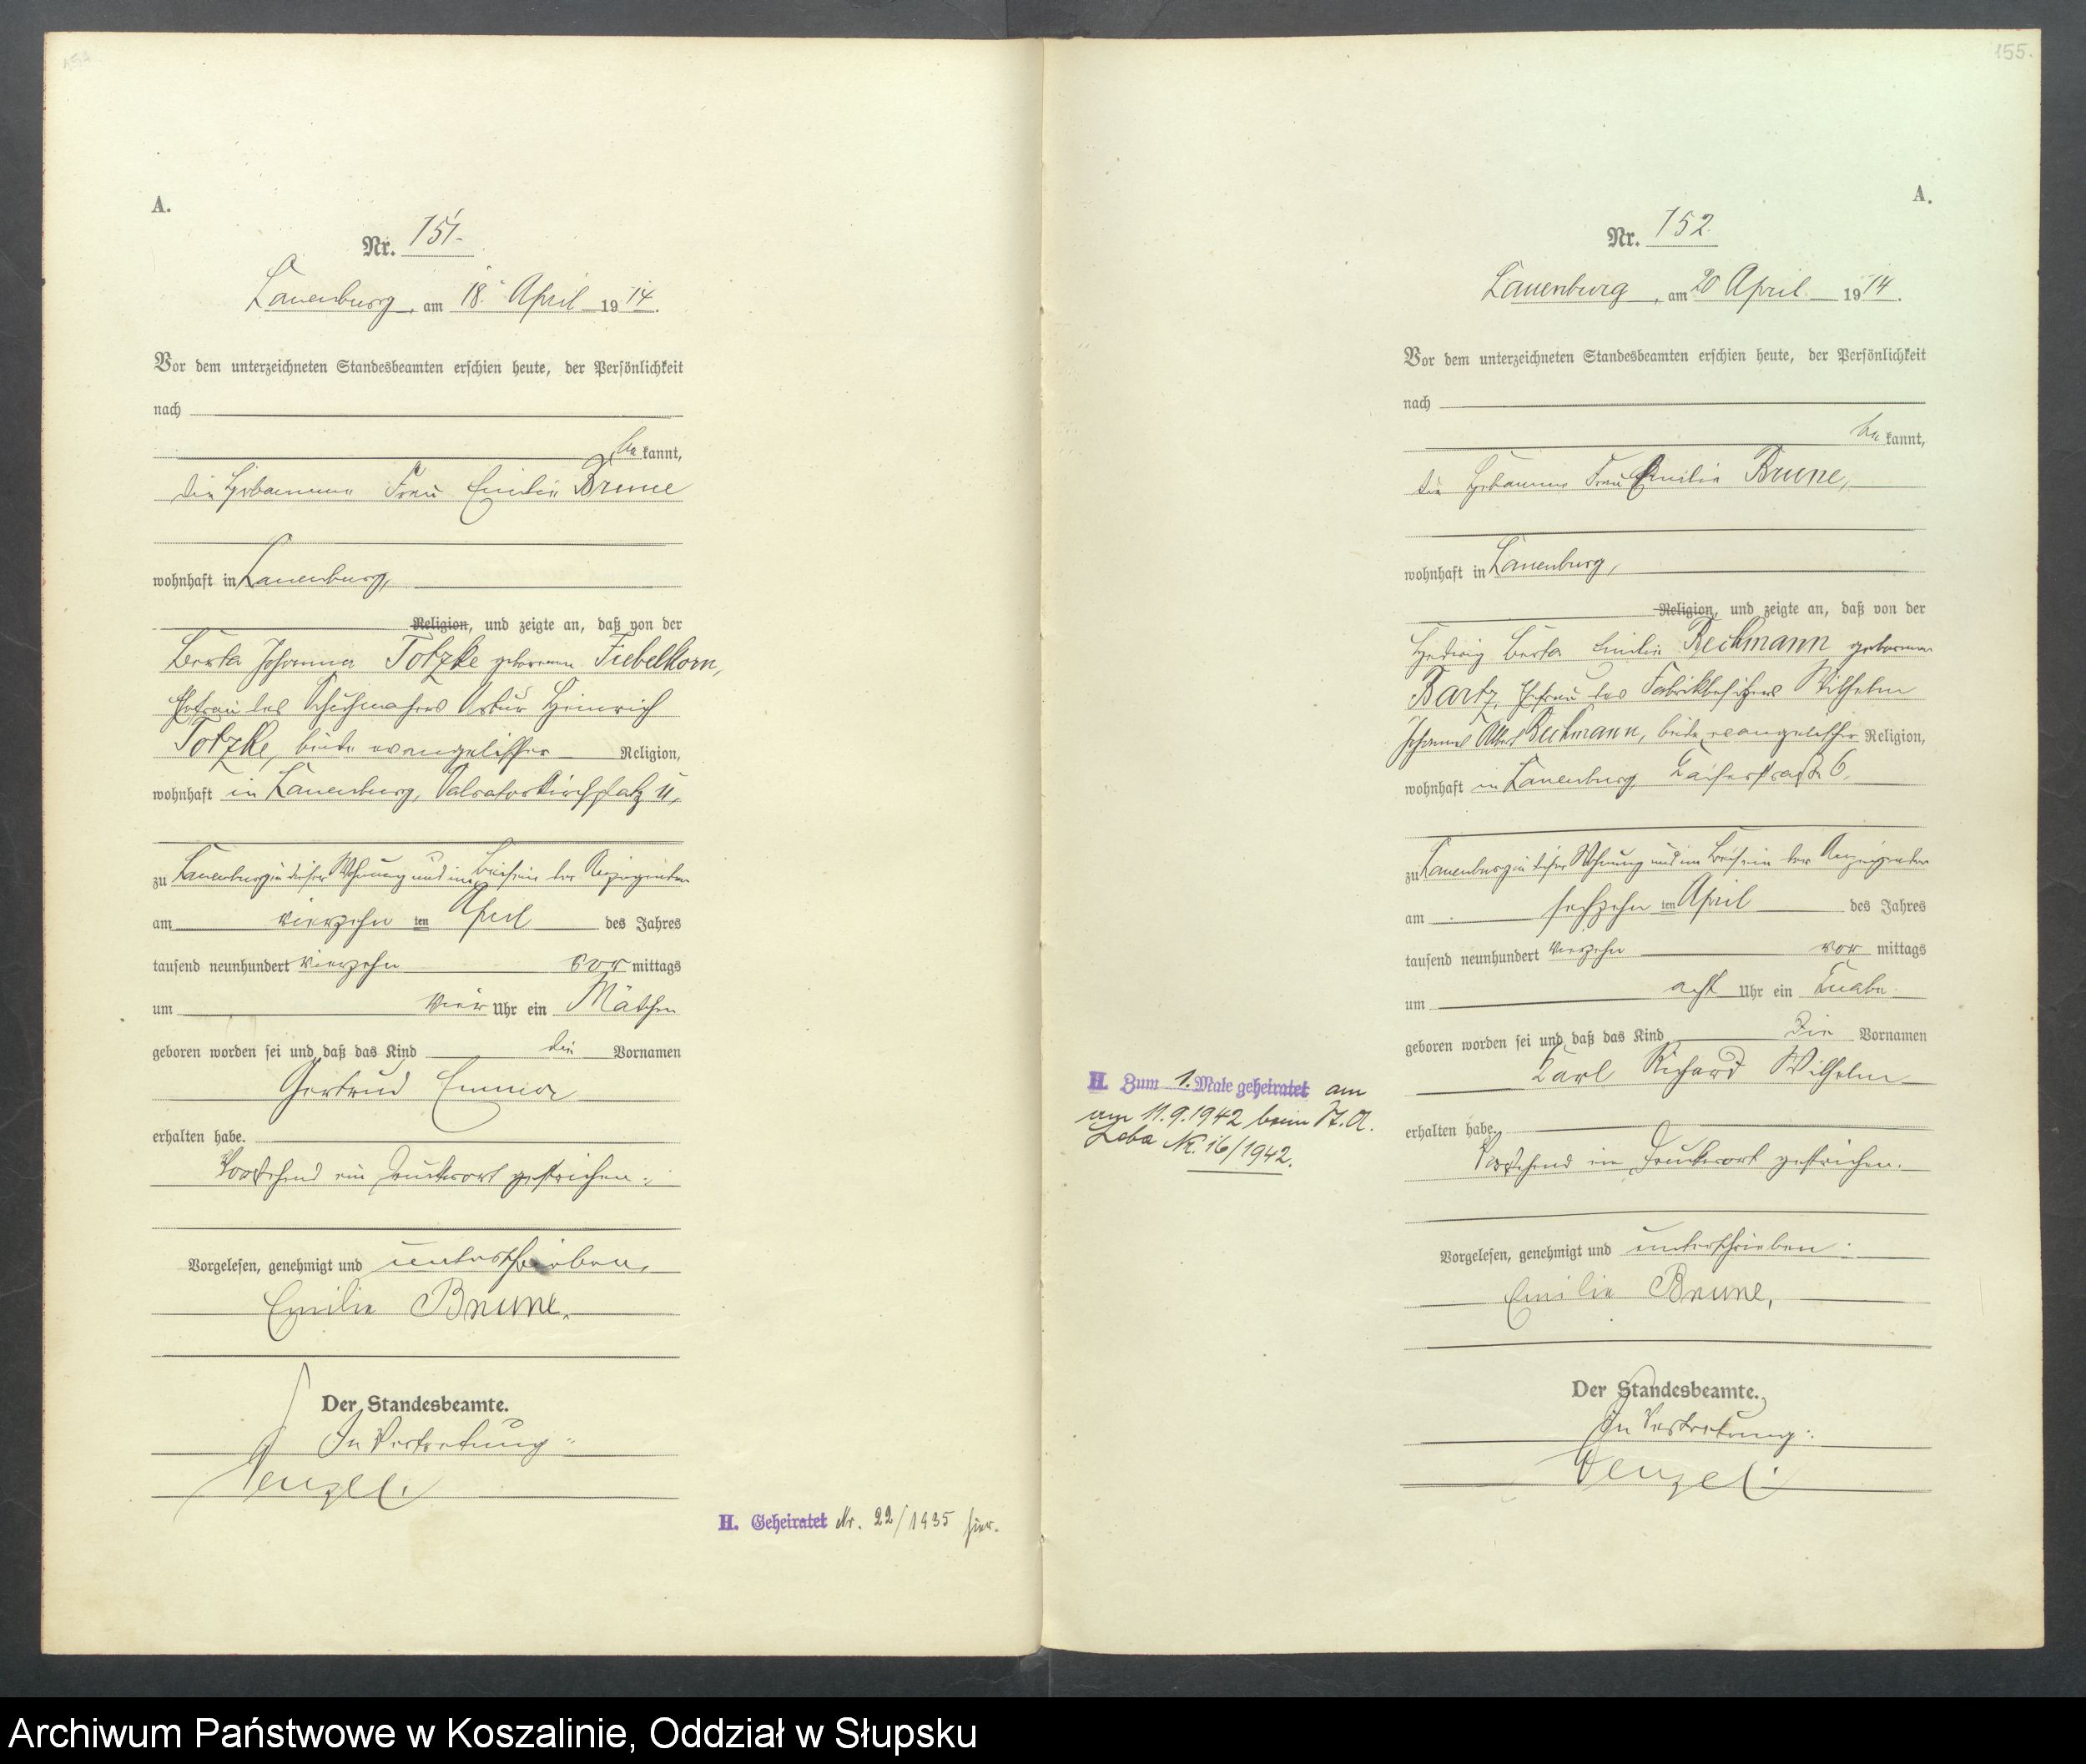 154
A.
Nr. 151.
Lauenburg, am 18. April 1914.
Vor dem unterzeichneten Standesbeamten erschien heute, der Persönlichkeit
nach
bekannt,
die Hebamme Frau Emilie Brune
wohnhaft in Lauenburg,
Religion, und zeigte an, daß von der
Berta Johanna Totzke geborenen Fiebelkorn,
Ehefrau des Schuhmachers Artur Heinrich
Totzke, beide evangelischer Religion,
wohnhaft in Lauenburg, Salvatorkirchplatz 4,
zu Lauenburg in dieser Wohnung und im Beisein der Anzeigenden
am vierzehnten April des Jahres
tausend neunhundert vierzehn vormittags
um vier Uhr ein Mädchen
geboren worden sei und daß das Kind die Vornamen
Gertrud Emma
erhalten habe.
Vorstehend ein Druckwort gestrichen.
Vorgelesen, genehmigt und unterschrieben.
Emilie Brune.
Der Standesbeamte.
In Vertretung:
Wenzel.
H. Geheiratet Nr. 22/1935 hier.
155.
A.
Nr. 152.
Lauenburg, am 20 April 1914.
Vor dem unterzeichneten Standesbeamten erschien heute, der Persönlichkeit
nach
bekannt,
die Hebamme Frau Emilie Brune,
wohnhaft in Lauenburg,
Religion, und zeigte an, daß von der
Hedwig Berta Emilie Beckmann geborenen
Bartz, Ehefrau des Fabrikbesitzers Wilhelm
Johannes Albert Beckmann, beide evangelischer Religion,
wohnhaft in Lauenburg, 6,
zu Lauenburg in dieser Wohnung und im Beisein der Anzeigenden
am sechzehnten April des Jahres
tausend neunhundert vierzehn vormittags
um acht Uhr ein Knabe
geboren worden sei und daß das Kind die Vornamen
Karl Richard Wilhelm
erhalten habe.
Vorstehend ein Druckwort gestrichen.
Vorgelesen, genehmigt und unterschrieben.
Emilie Brune.
Der Standesbeamte.
In Vertretung:
Wenzel.
H. Zum 1. Male geheiratet am
am 11.9.1942 beim St.A.
Leba Nr. 16/1942.
Archiwum Państwowe w Koszalinie, Oddział w Słupsku